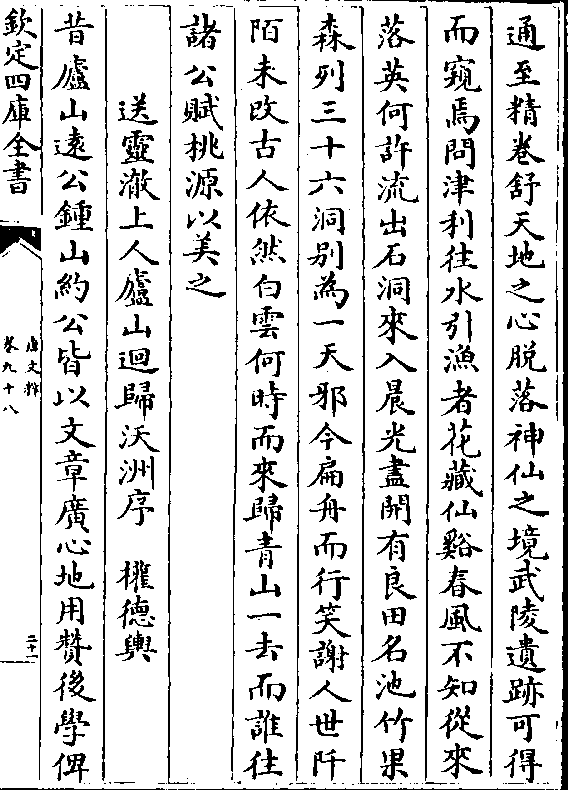 通至精卷舒天地之心脫落神仙之境武陵遺跡可得
而窺焉問津利往水引漁者花藏仙谿春風不知從來
落英何許流出石洞來入晨光盡開有良田名池竹果
森列三十六洞別為一天邪今扁舟而行笑謝人世阡
陌未改古人依然白雲何時而來歸青山一去而誰往
諸公賦桃源以美之
送靈澈上人廬山迴歸沃洲序　權德輿
昔廬山遠公鍾山約公皆以文章廣心地用贊後學俾
欽定四庫全書
唐文粹
卷九十八
二十一